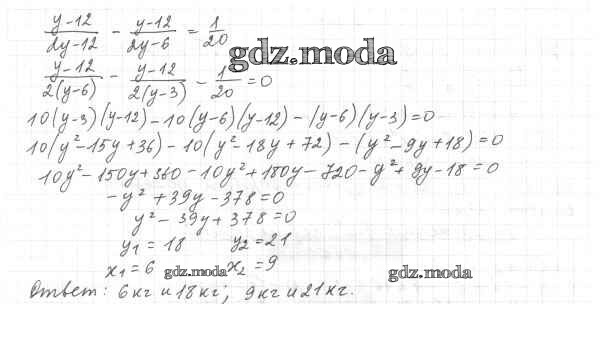 (y-12)/(2y-12) - (y-12)/(2y-6) = 1/20
gdz.moda
(y-12)/(2(y-6)) - (y-12)/(2(y-3)) - 1/20 = 0
10(y-3)(y-12) - 10(y-6)(y-12) - (y-6)(y-3) = 0
10(y²-15y+36) - 10(y²-18y+72) - (y²-9y+18) = 0
10y² - 150y + 360 - 10y² + 180y - 720 - y² + 9y - 18 = 0
-y² + 39y - 378 = 0
y² - 39y + 378 = 0
y₁ = 18 y₂ = 21
x₁ = 6 gdz.moda x₂ = 9 gdz.moda
Ответ: 6 кг и 18 кг; 9 кг и 21 кг.